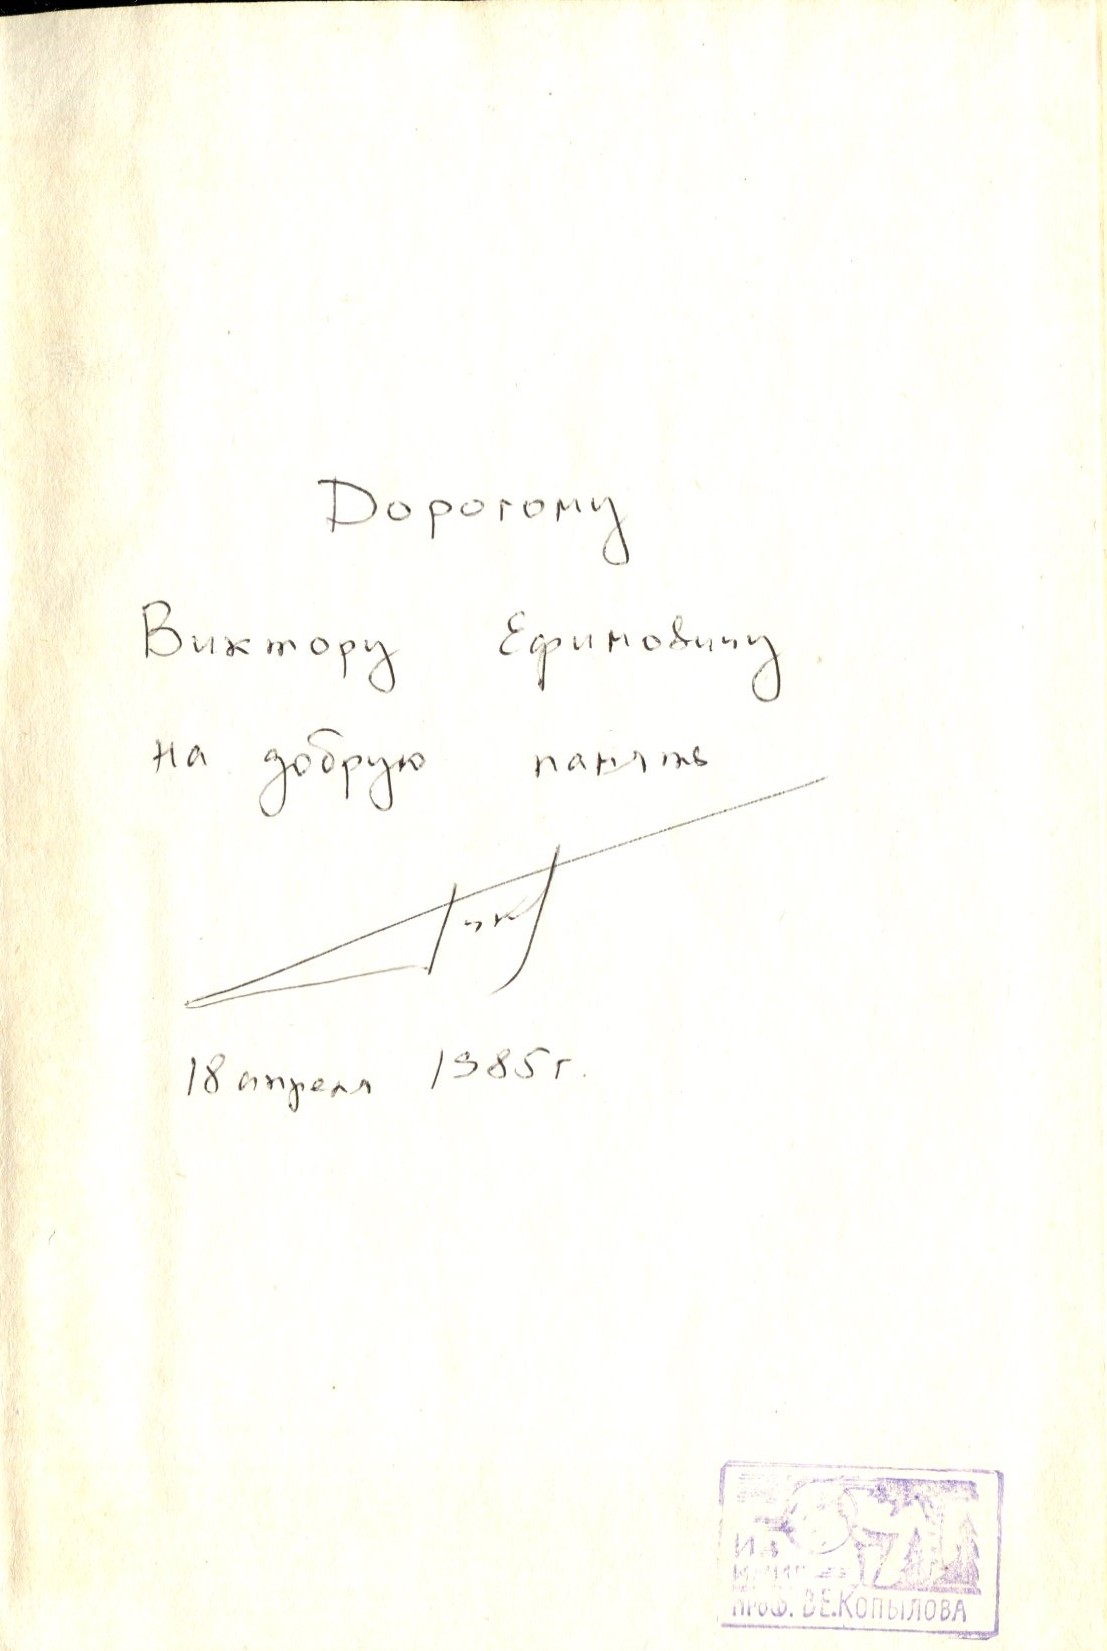 Дорогому
Виктору Ефимовичу
на добрую память
18 апреля 1985 г.
Из
книг
проф. В.Е.Копылова